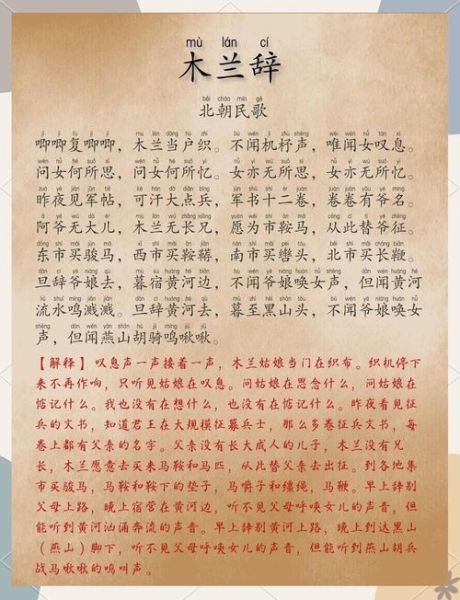 mù lán cí
木兰辞
běi cháo mín gē
北朝民歌
唧唧复唧唧，木兰当户织。不闻机杼声，唯闻女叹息。
问女何所思，问女何所忆。女亦无所思，女亦无所忆。
昨夜见军帖，可汗大点兵，军书十二卷，卷卷有爷名。
阿爷无大儿，木兰无长兄，愿为市鞍马，从此替爷征。
东市买骏马，西市买鞍鞯，南市买辔头，北市买长鞭。
旦辞爷娘去，暮宿黄河边，不闻爷娘唤女声，但闻黄河
流水鸣溅溅。旦辞黄河去，暮至黑山头，不闻爷娘唤女
声，但闻燕山胡骑鸣啾啾。
【解释】叹息声一声接着一声，木兰姑娘当门在织布。织机停下
来不再作响，只听见姑娘在叹息。问姑娘在思念什么，问姑娘在
惦记什么。我也没有在想什么，也没有在惦记什么。昨夜看见征
兵的文书，知道君王在大规模征募兵士，那么多卷征兵文书，每
卷上都有父亲的名字。父亲没有长大成人的儿子，木兰没有兄
长，木兰愿意去买来马鞍和马匹，从此替父亲去出征。到各地集
市买骏马，马鞍和鞍下的垫子，马嚼子和缰绳，马鞭。早上辞别
父母上路，晚上宿营在黄河边，听不见父母呼唤女儿的声音，但
能听到黄河汹涌奔流的声音。早上辞别黄河上路，晚上到达黑山
（燕山）脚下，听不见父母呼唤女儿的声音，但能听到燕山胡兵
战马啾啾的鸣叫声。